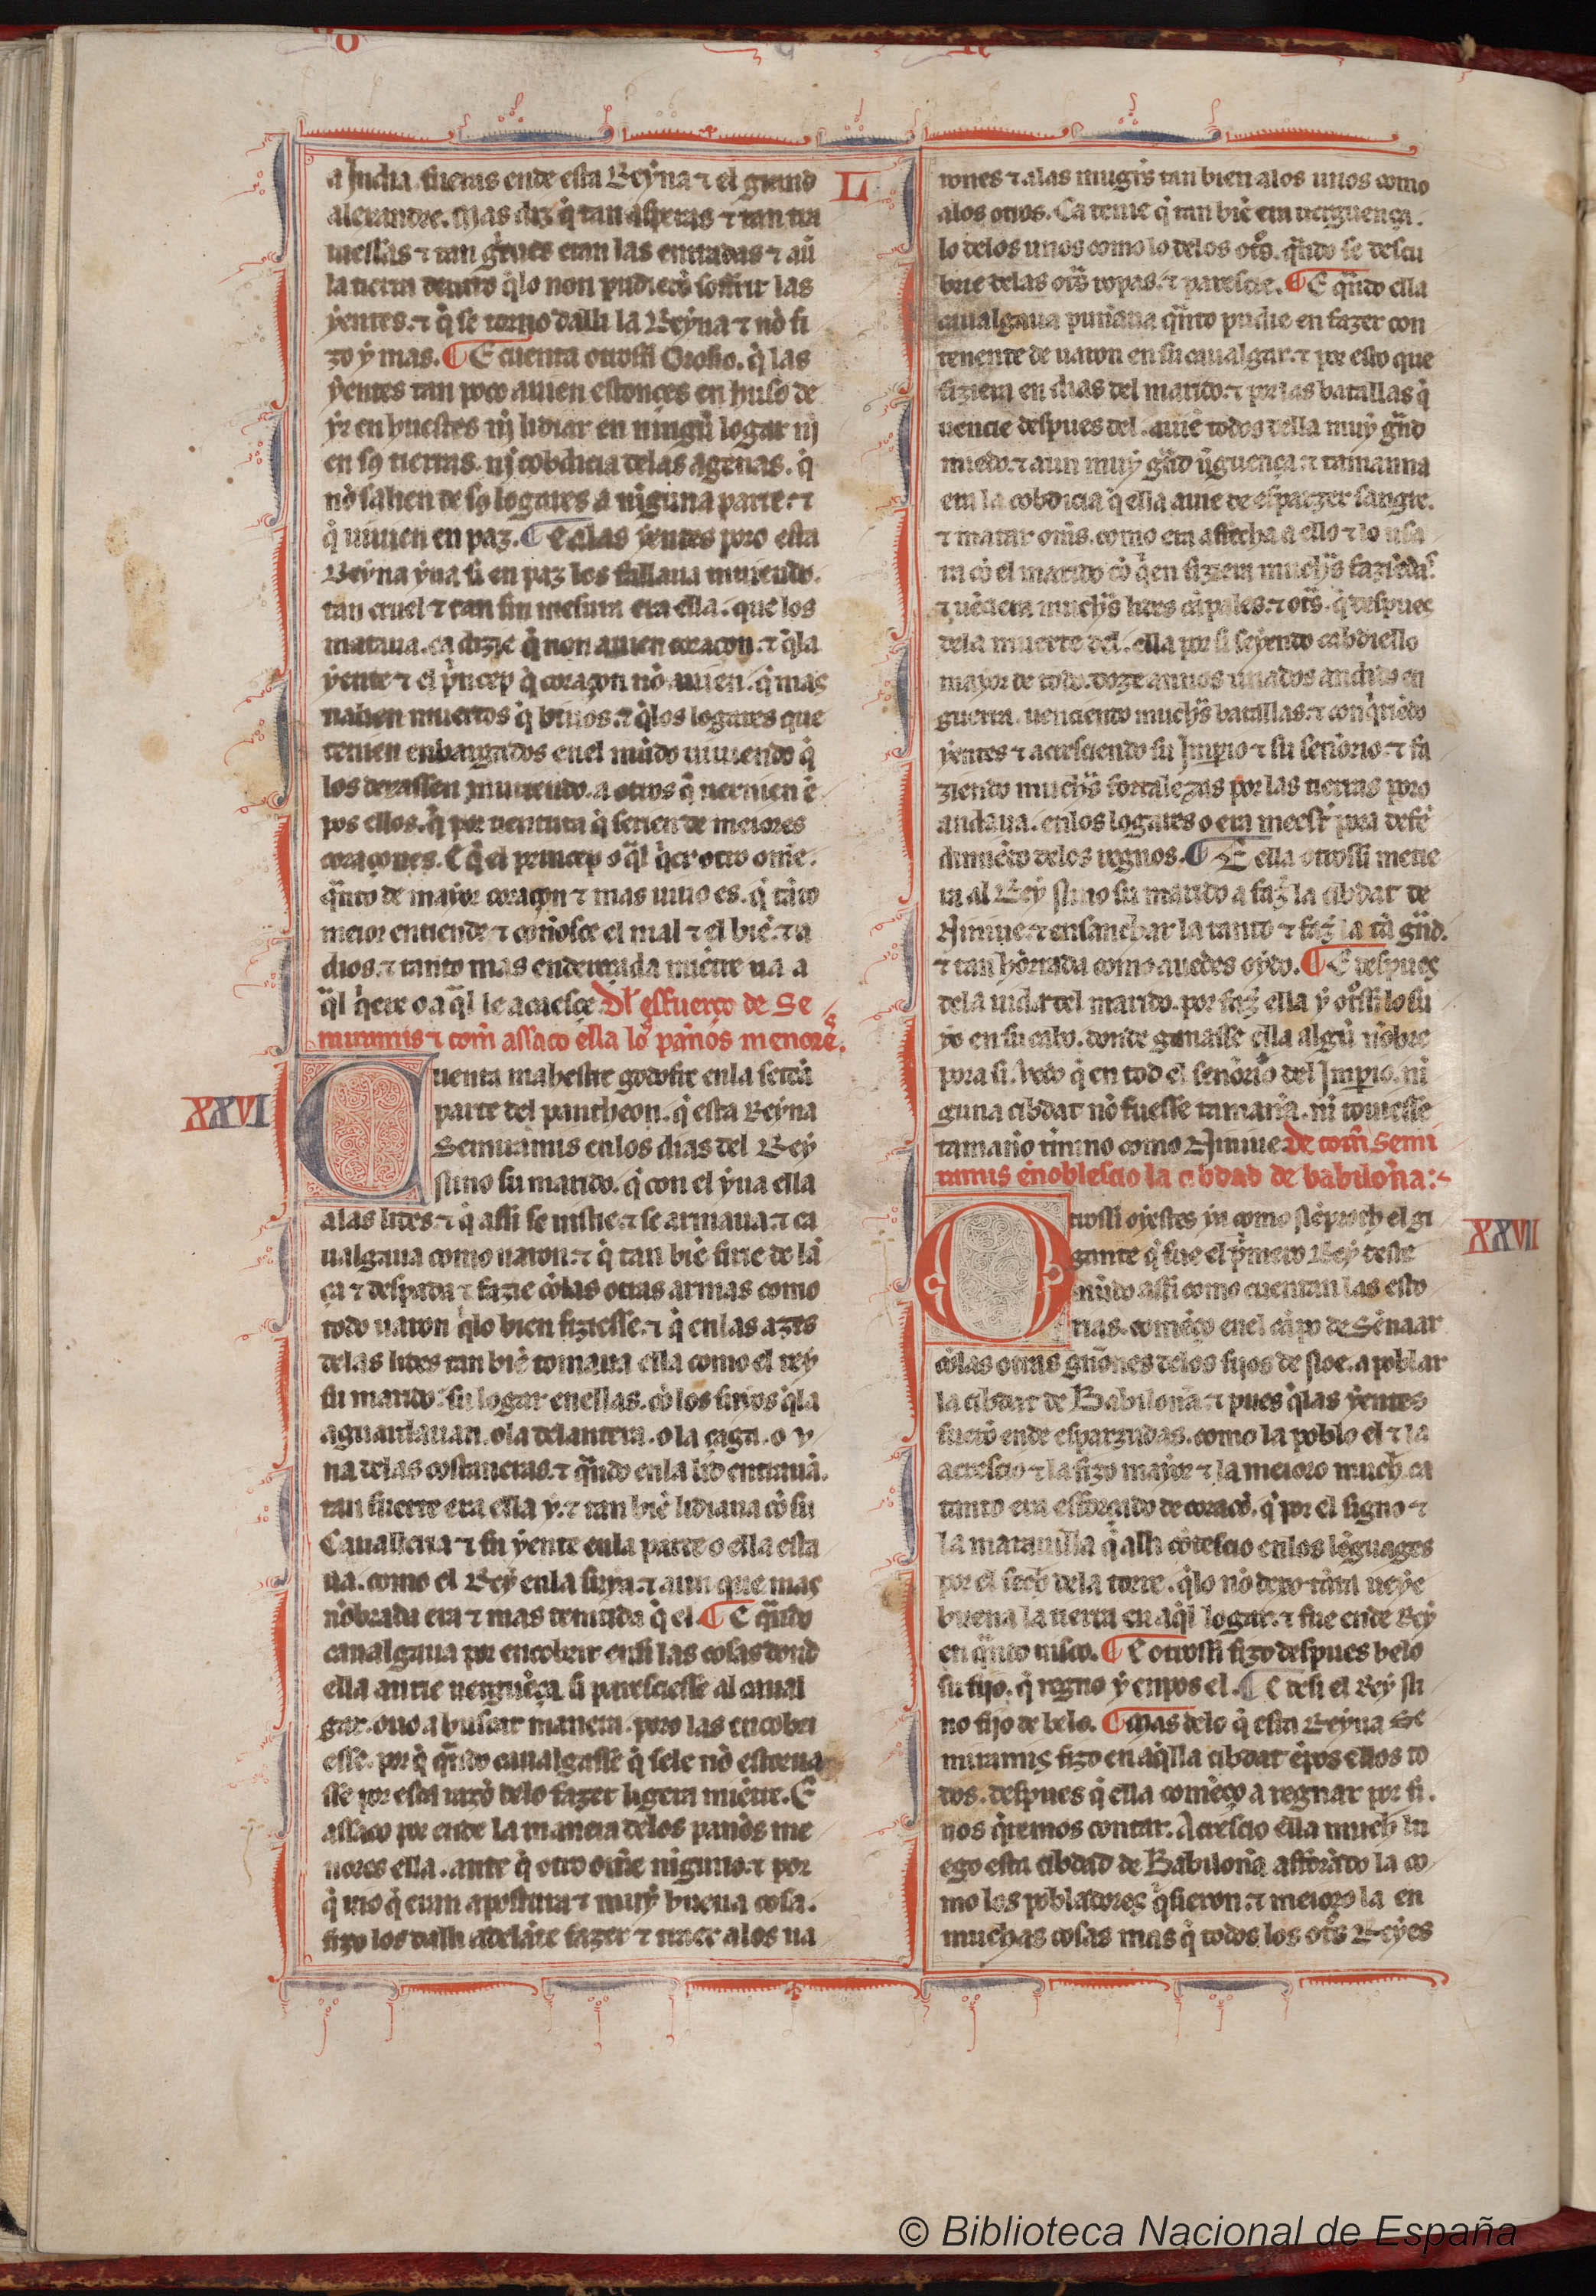 L
a India. fueras ende esta Reyna ⁊ el grand
alexandre. Mas diz q̇ tan asperas ⁊ tan tra
uiessas ⁊ tan graues eran las entradas ⁊ aũ
la tierra dentro q̇lo non pudierõ soffrir las
yentes. ⁊ q̇ se torno dalli la Reyna ⁊ nõ fi
zo y mas. ¶ E cuenta otrossi Orosio. q̇ las
yentes tan poco auien estonces en huso de
yr en huestes nj lidiar en ningũ logar nj
en sꝯ tierras. nj cobdicia delas agenas. q̇
nõ salien de sꝯ logares a niguna parte. ⁊
q̇ uiuien en paz. ¶ E alas yentes poro esta
Reyna yua si en paz los fallaua muiendo.
tan cruel ⁊ tan sin mesura era ella. que los
mataua. ca dizie q̇ non auien coraçon. ⁊ q̇la
yente ⁊ el ṗncep q̇ coraçon nõ auien. q̇ mas
ualien muertos q̇ biuos. ⁊ q̇los logares que
tenien enbargados enel mũdo uiuiendo q̇
los dexassen muriendo. a otros q̇ uernien ẽ
pos ellos. q̇ por uentura q̇ serien de meiores
coraçones. E q̇ el princep o q̃l q̇er otro om̃e.
q̃nto de mayor coraçon ⁊ mas uiuo es. q̇ tãto
meior entiende ⁊ connosce el mal ⁊ el biẽ. ⁊ a
dios. ⁊ tanto mas endereçada miẽtre ua a
q̃l q̇ere o a q̃l le acaesce Dl̃ esfuerço de Se
miramis ⁊ com̃ assaco ella lo pãnos menores.
XXVI
Cuenta mahestre godofre enla sectã
parte del pantheon. q̇ esta Reyna
Semiramis enlos dias del Rey
Nino su marido. q̇ con el yua ella
alas lides. ⁊ q̇ assi se uistie. ⁊ se armaua. ⁊ ca
ualgaua como uaron. ⁊ q̇ tan biẽ firie de lã
ça ⁊ despada ⁊ fazie cõlas otras armas como
todo uaron q̇lo bien fiziesse. ⁊ q̇ enlas azes
delas lides tan biẽ tomaua ella como el rey
su marido su logar enellas. cõ los suyos q̇la
aguardauan. o la delantera. o la çaga. o y
na delas costaneras. ⁊ q̃ndo enla lid entrauã.
tan fuerte era ella y. ⁊ tan biẽ lidiaua cõ su
Caualleria ⁊ su yente enla parte o ella esta
ua. como el Rey enla suya. ⁊ aun que mas
nõbrada era ⁊ mas temida q̇ el. ¶ E q̃ndo
caualgaua por encobrir ensi las cosas dond
ella aurie uerguẽça si paresciesse al caual
gar. ouo a buscar manera. poro las encobri
esse. por q̇ q̃ndo caualgasse q̇ sele nõ estorua
sse por esta razõ delo fazer ligera miẽtre. E
assaco por ende la manera delos panõs me
nores ella. ante q̇ otro om̃e niguno. ⁊ por
q̇ uio q̇ eran apostura ⁊ muy buena cosa.
fizo los dalli adelãte fazer ⁊ traer alos ua
rones ⁊ alas mugie͂s tan bien alos unos como
alos otros. Ca tenie q̇ tan biẽ era uerguença.
lo delos unos como lo delos otͦs. q̃ndo se descu
brie delas otͣs ropas. ⁊ paresçie. ¶ E q̃ndo ella
caualgaua punãua q̃nto pudie en fazer con
tenente de uaron en su caualgar. ⁊ por esto que
fiziera en dias del marido. ⁊ por las batallas q̇
uencie despues del. auiẽ todos della muy grãd
miedo. ⁊ aun muy grãd ũguença. ⁊ tamanna
era la cobdicia q̇ ella auie de esparzer sangre.
⁊ matar om̃s. como era afecha a ello ⁊ lo usa
ra cõ el marido cõ q̇en fiziera muchͣs faziẽdas.
⁊ uẽciera muchͣs lides cãpales. ⁊ otͣs. q̇ despues
dela muerte del. ella por si seyendo cabdiello
mayor de todo. doze annos unados anduuo en
guerra. uenciendo muchͣs batallas. ⁊ conq̇riẽdo
yentes ⁊ acresciendo su Imp̃io ⁊ su senõrio. ⁊ fa
ziendo muchͣs fortalezas por las tierras poro
andaua. enlos logares o era meestͬ pora defẽ
dimiẽto delos regnos. ¶ E ella otrossi metie
ra al Rey Nino su marido a faz̃ la cibdat de
Niniue. ⁊ ensanchar la tanto ⁊ faz̃ la tã grãd.
⁊ tan hõrrada como auedes oydo. ¶ E despues
dela uida del marido. por faz̃ ella y otͦssi lo su
yo en su cabo. donde ganasse ella algũ nõbre
pora si. Vedo q̇ en tod el senõrio del Imp̃io. ni
guna cibdat nõ fuesse tamaña. ni touiesse
tamaño timino como Niniue. De com̃ Semi
ramis ẽnoblescio la cibdad de babilonña:~
XXVII
Otrossi oyestes ya como Nẽproth el gi
gante q̇ fue el p̃mero Rey deste
mũdo assi como cuentan las esto
rias. comẽço enel cãpo de Sẽnaar
cõlas otras gñ̃ones delos fijos de Noe. a poblar
la cibdat de Babilonña. ⁊ pues q̇las yẽntes
fuerõ ende esparzudas. como la poblo el ⁊ la
acrescio ⁊ la fizo mayor ⁊ la meioro much. ca
tanto era esforçado de coraçõ. q̇ por el signo ⁊
la marauilla q̇ alli cõtescio enlos lẽguages
por el fecho dela torre. q̇lo nõ dexo tãta ueye
buena la tierra en aq̃l logar. ⁊ fue ende Rey
en q̃nto uisco. ¶ E otrossi fizo despues belo
su fijo. q̇ regno y enpos el. ¶ E desi el Rey Ni
no fijo de belo. ¶ Mas delo q̇ esta Reyna Se
miramis fizo en aq̃lla cibdat ẽpos ellos to
dos. despues q̇ ella comẽço a regnar por si.
nos q̇remos contar. Acrescio ella much lu
ego esta cibdad de Babilonña afforãdo la co
mo los pobladores q̇sieron. ⁊ meioro la en
muchas cosas mas q̇ todos los otͦs Reyes
© Biblioteca Nacional de España